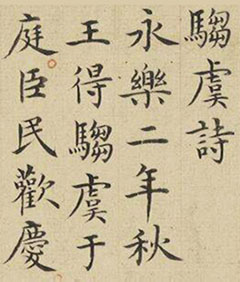 騶虞詩
永樂二年秋
王得騶虞于
庭臣民歡慶